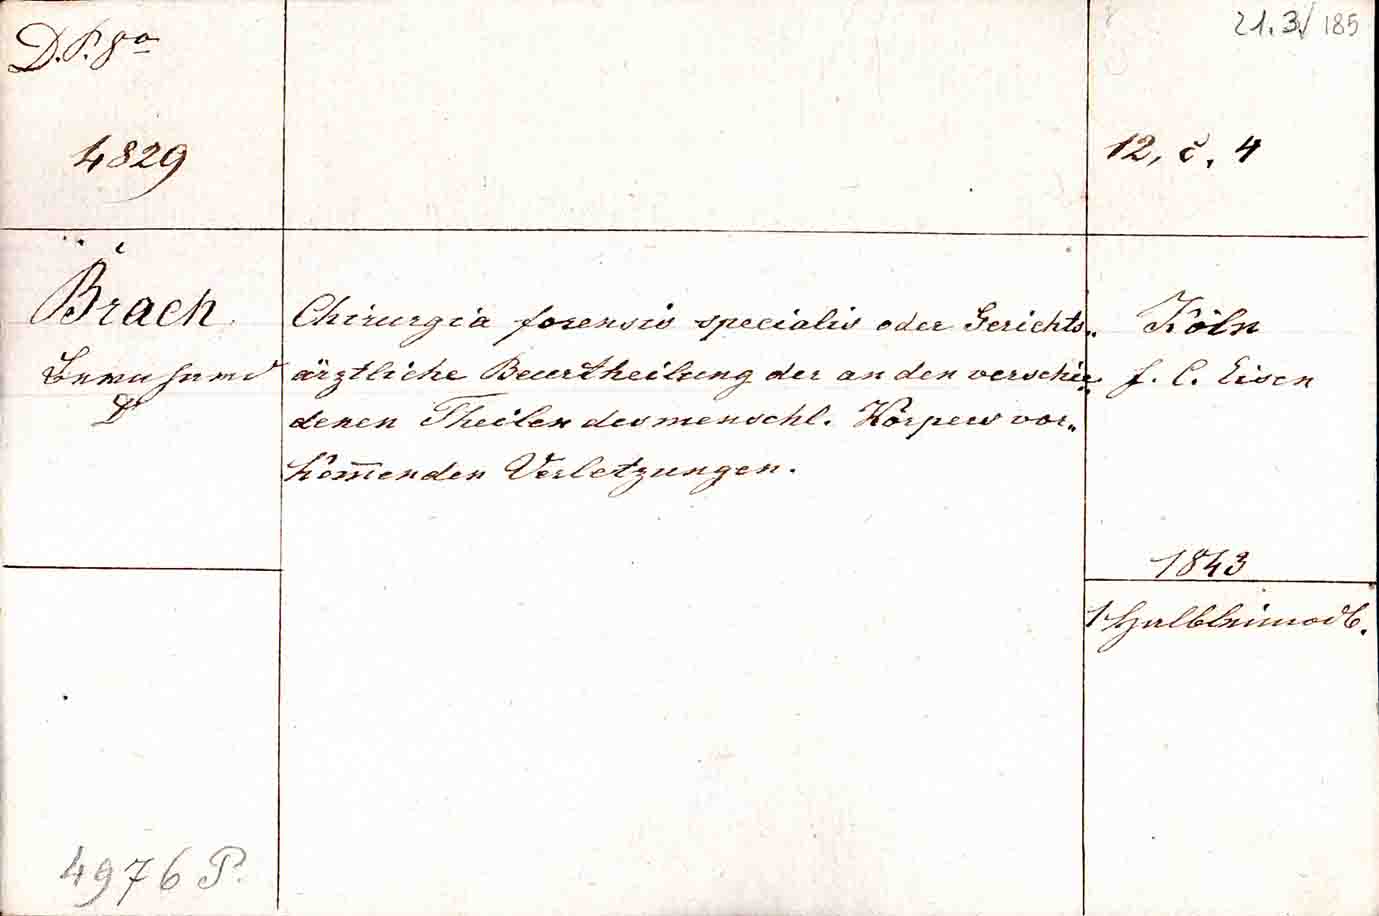 D.P. 8°
21.3./185
4829
12, c, 4
Brach
Bernhard
Dr
Chirurgia forensis specialis oder Gerichts„
ärztliche Beurtheilung der an den verschie„
denen Theilen des menschl. Körpers vor„
kom̅enden Verletzungen.
Köln
F. C. Eisen
1843
1 Halbleinwdb.
4976 P.